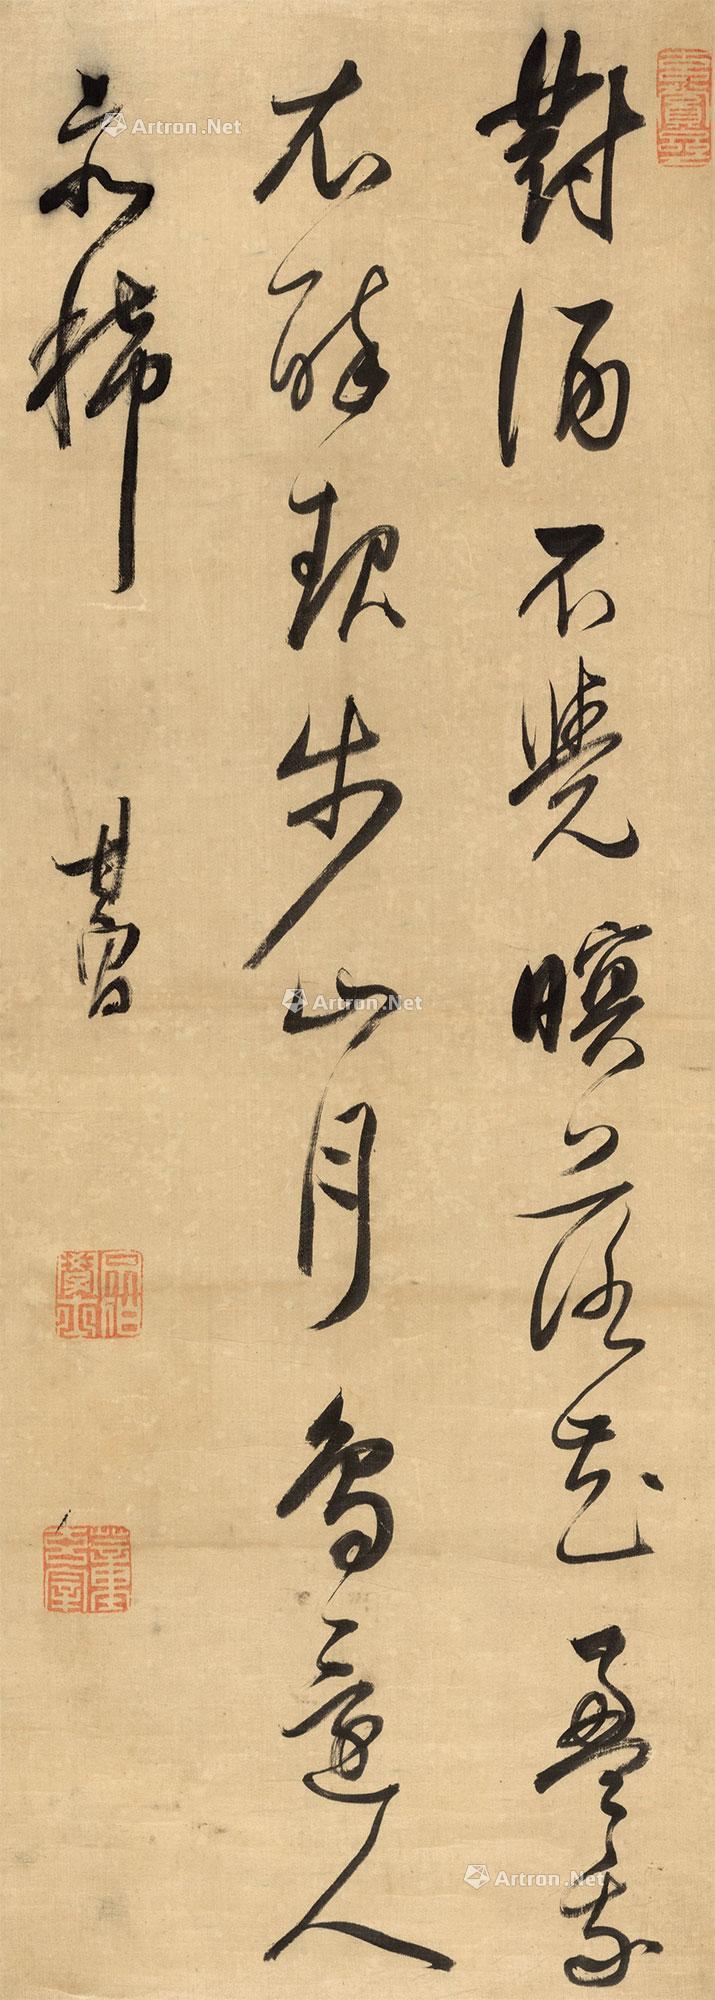 對酒不覺暝落花盈我
衣醉起步山月鳥還人
亦稀
Artron.Net
Artron.Net
Artron.Net
Artron.Net